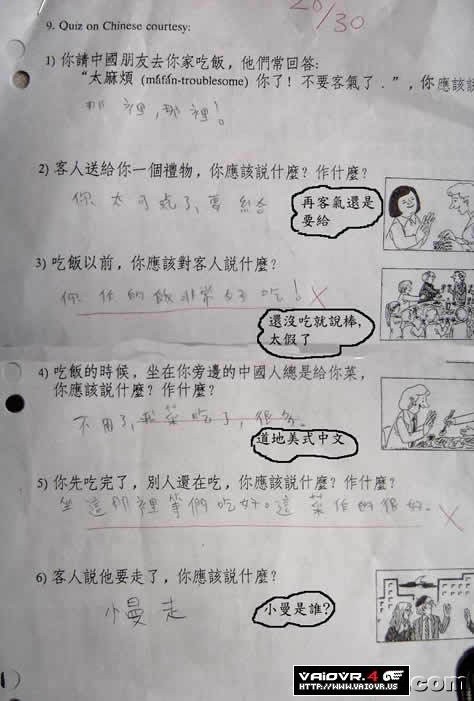 20/30
9. Quiz on Chinese courtesy:
1) 你請中國朋友去你家吃飯，他們常回答:
“太麻煩 (máfán-troublesome) 你了! 不要客氣了．”, 你應該說
那裡，那裡!
2) 客人送給你一個禮物，你應該說什麼? 作什麼?
你太可氣了，要給
再客氣還是
要給
3) 吃飯以前，你應該對客人說什麼?
你作的飯非常好吃! ×
還沒吃就說棒，
太假了
4) 吃飯的時候，坐在你旁邊的中國人總是給你菜，
你應該說什麼? 作什麼?
不用了，我菜吃了，很多。
道地美式中文
5) 你先吃完了，別人還在吃，你應該說什麼? 作什麼?
坐這那裡等們吃好。這菜作的很好。 ×
6) 客人說他要走了，你應該說什麼?
小曼走
小曼是誰?
VAIOVR.4
HTTP://WWW.VAIOVR.US
com